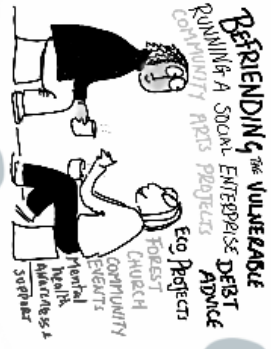 BEFRIENDING THE VULNERABLE
RUNNING A SOCIAL ENTERPRISE
COMMUNITY ARTS PROJECTS
DEBT
ADVICE
ECO PROJECTS
FOREST
CHURCH
COMMUNITY
EVENTS
Mental
health
AWARENESS &
SUPPORT